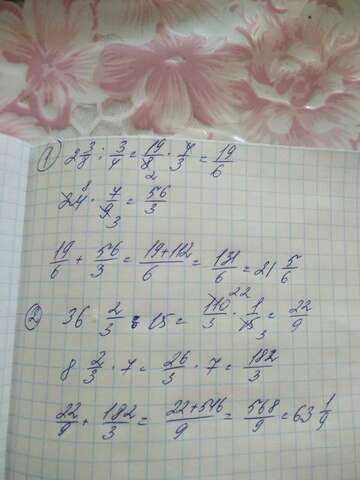 1) 2 3/8 : 3/4 = 19/8 · 4/3 = 19/6
24 · 7/9 = 56/3
19/6 + 56/3 = 19+112/6 = 131/6 = 21 5/6
2) 36 2/3 : 15 = 110/3 · 1/15 = 22/9
8 2/3 · 7 = 26/3 · 7 = 182/3
22/9 + 182/3 = 22+546/9 = 568/9 = 63 1/9